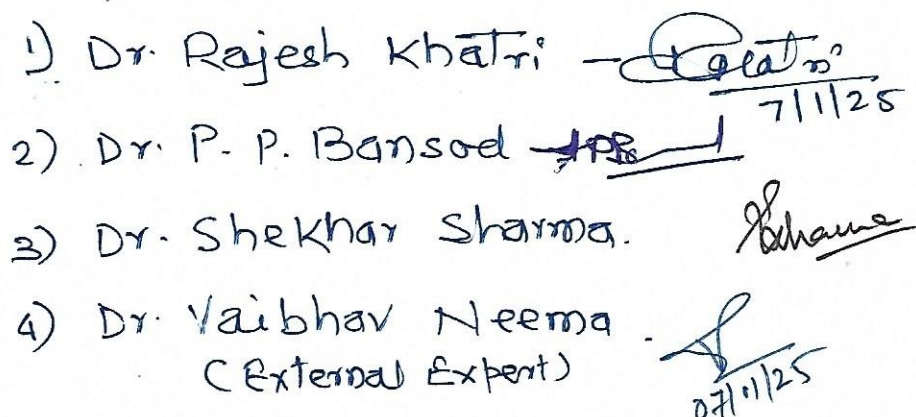 1) Dr. Rajesh Khatri - Khatri
7/1/25
2) Dr. P. P. Bansod
3) Dr. Shekhar Sharma. Sharma
4) Dr. Vaibhav Neema.
(External Expert)
07/01/25